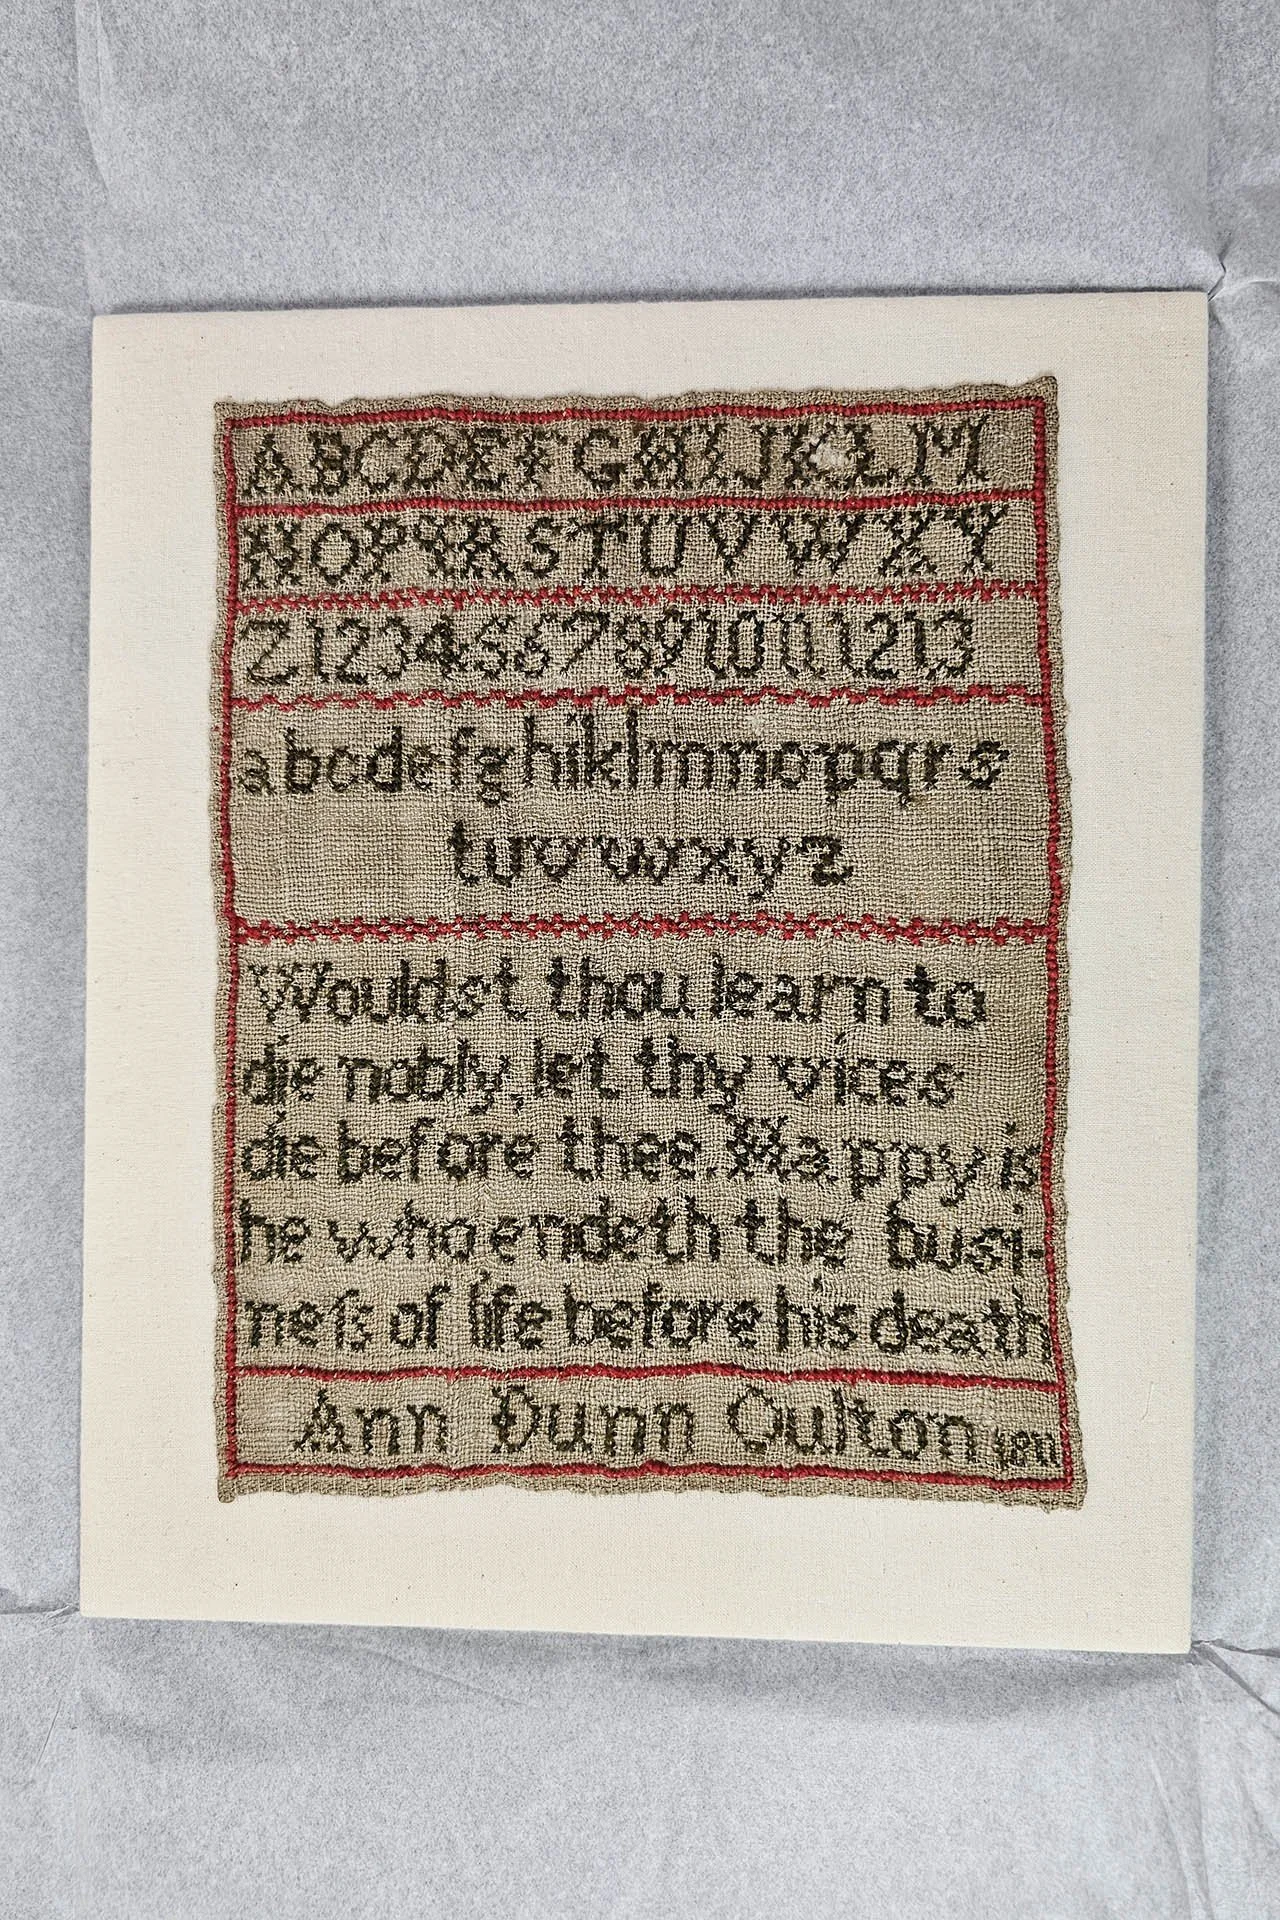 ABCDEFGHIJKLM
NOPQRSTUVWXY
Z12345678910111213
abcdefghiklmnopqrs
tuvwxyz
Wouldst thou learn to
die nobly, let thy vices
die before thee. Happy is
he who endeth the busi-
neſs of life before his death
Ann Dunn Oulton 1811